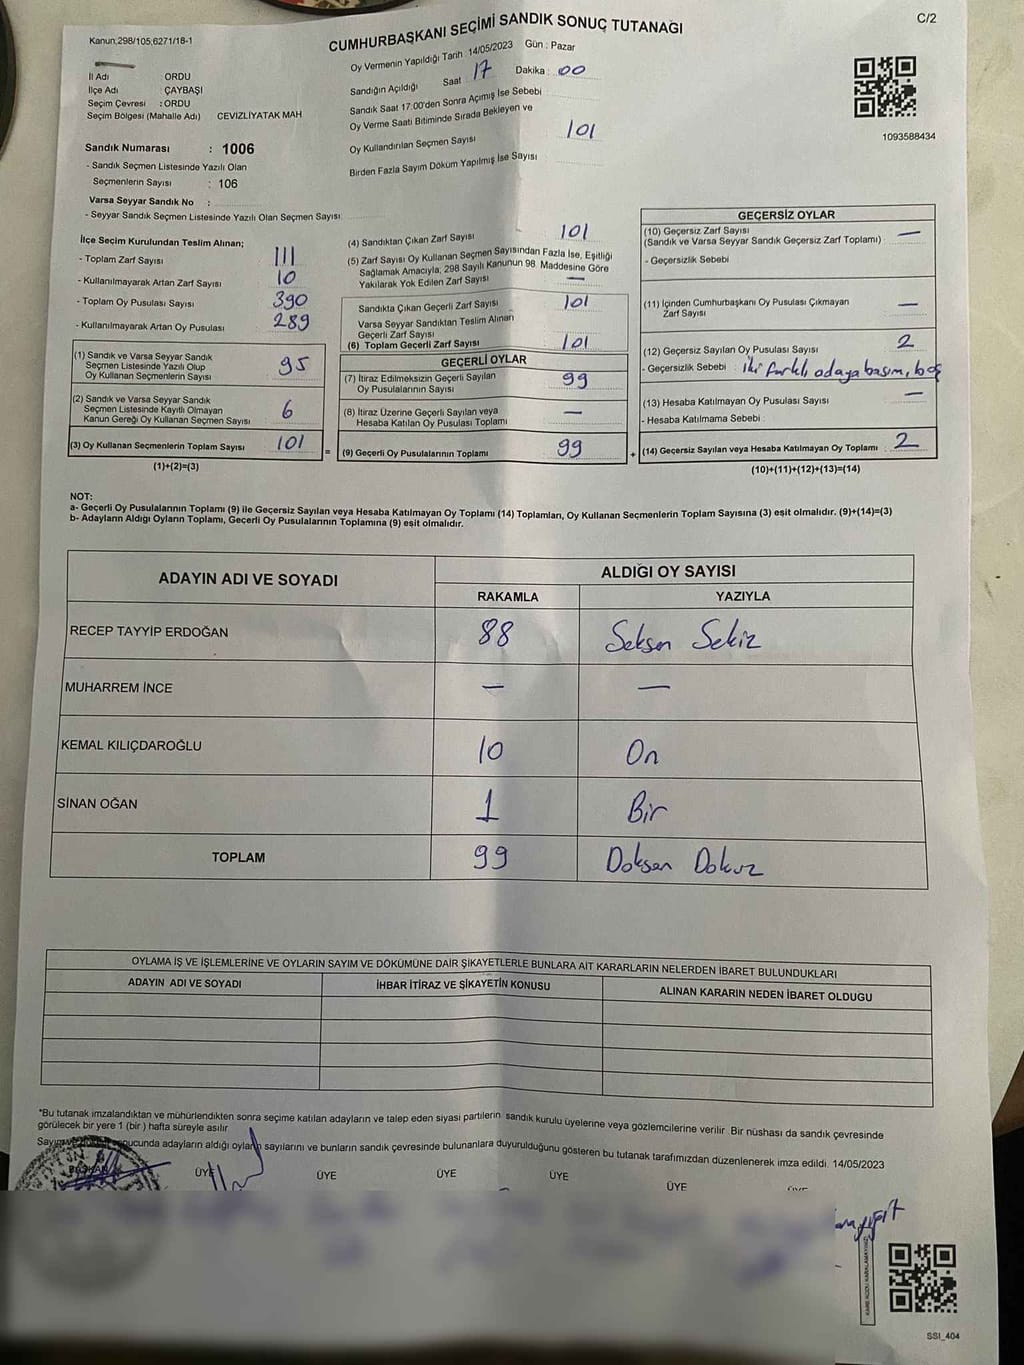 C/2
Kanun;298/105;6271/18-1
CUMHURBAŞKANI SEÇİMİ SANDIK SONUÇ TUTANAĞI
Oy Vermenin Yapıldığı Tarih : 14/05/2023 Gün : Pazar
Sandığın Açıldığı Saat 17 Dakika : 00
Sandık Saat 17:00'den Sonra Açımış İse Sebebi
Oy Verme Saati Bitiminde Sırada Bekleyen ve
Oy Kullandırılan Seçmen Sayısı 101
Birden Fazla Sayım Döküm Yapılmış İse Sayısı
İl Adı ORDU
İlçe Adı ÇAYBAŞI
Seçim Çevresi : ORDU
Seçim Bölgesi (Mahalle Adı) CEVİZLİYATAK MAH
Sandık Numarası : 1006
- Sandık Seçmen Listesinde Yazılı Olan
Seçmenlerin Sayısı : 106
Varsa Seyyar Sandık No :
- Seyyar Sandık Seçmen Listesinde Yazılı Olan Seçmen Sayısı:
1093588434
İlçe Seçim Kurulundan Teslim Alınan;
- Toplam Zarf Sayısı 111
- Kullanılmayarak Artan Zarf Sayısı 10
- Toplam Oy Pusulası Sayısı 390
- Kullanılmayarak Artan Oy Pusulası 289
(1) Sandık ve Varsa Seyyar Sandık
Seçmen Listesinde Yazılı Olup
Oy Kullanan Seçmenlerin Sayısı 95
(2) Sandık ve Varsa Seyyar Sandık
Seçmen Listesinde Kayıtlı Olmayan
Kanun Gereği Oy Kullanan Seçmen Sayısı 6
(3) Oy Kullanan Seçmenlerin Toplam Sayısı 101
(1)+(2)=(3)
=
(4) Sandıktan Çıkan Zarf Sayısı 101
(5) Zarf Sayısı Oy Kullanan Seçmen Sayısından Fazla İse, Eşitliği
Sağlamak Amacıyla; 298 Sayılı Kanunun 98. Maddesine Göre
Yakılarak Yok Edilen Zarf Sayısı —
Sandıkta Çıkan Geçerli Zarf Sayısı 101
Varsa Seyyar Sandıktan Teslim Alınan
Geçerli Zarf Sayısı
(6) Toplam Geçerli Zarf Sayısı 101
GEÇERLİ OYLAR
(7) İtiraz Edilmeksizin Geçerli Sayılan
Oy Pusulalarının Sayısı 99
(8) İtiraz Üzerine Geçerli Sayılan veya
Hesaba Katılan Oy Pusulası Toplamı —
(9) Geçerli Oy Pusulalarının Toplamı 99
+
GEÇERSİZ OYLAR
(10) Geçersiz Zarf Sayısı —
(Sandık ve Varsa Seyyar Sandık Geçersiz Zarf Toplamı) :
- Geçersizlik Sebebi
(11) İçinden Cumhurbaşkanı Oy Pusulası Çıkmayan
Zarf Sayısı —
(12) Geçersiz Sayılan Oy Pusulası Sayısı 2
- Geçersizlik Sebebi : iki farklı adaya basım, boş
(13) Hesaba Katılmayan Oy Pusulası Sayısı —
- Hesaba Katılmama Sebebi :
(14) Geçersiz Sayılan veya Hesaba Katılmayan Oy Toplamı 2
(10)+(11)+(12)+(13)=(14)
NOT:
a- Geçerli Oy Pusulalarının Toplamı (9) ile Geçersiz Sayılan veya Hesaba Katılmayan Oy Toplamı (14) Toplamları, Oy Kullanan Seçmenlerin Toplam Sayısına (3) eşit olmalıdır. (9)+(14)=(3)
b- Adayların Aldığı Oyların Toplamı, Geçerli Oy Pusulalarının Toplamına (9) eşit olmalıdır.
ADAYIN ADI VE SOYADI ALDIĞI OY SAYISI
RAKAMLA YAZIYLA
RECEP TAYYİP ERDOĞAN 88 Seksen Sekiz
MUHARREM İNCE — —
KEMAL KILIÇDAROĞLU 10 On
SİNAN OĞAN 1 Bir
TOPLAM 99 Doksan Dokuz
OYLAMA İŞ VE İŞLEMLERİNE VE OYLARIN SAYIM VE DÖKÜMÜNE DAİR ŞİKAYETLERLE BUNLARA AİT KARARLARIN NELERDEN İBARET BULUNDUKLARI
ADAYIN ADI VE SOYADI İHBAR İTİRAZ VE ŞİKAYETİN KONUSU ALINAN KARARIN NEDEN İBARET OLDUGU
*Bu tutanak imzalandıktan ve mühürlendikten sonra seçime katılan adayların ve talep eden siyasi partilerin sandık kurulu üyelerine veya gözlemcilerine verilir. Bir nüshası da sandık çevresinde
görülecek bir yere 1 (bir ) hafta süreyle asılır
sonucunda adayların aldığı oyların sayılarını ve bunların sandık çevresinde bulunanlara duyurulduğunu gösteren bu tutanak tarafımızdan düzenlenerek imza edildi. 14/05/2023
BAŞKAN ÜYE ÜYE ÜYE ÜYE ÜYE
SSI_404